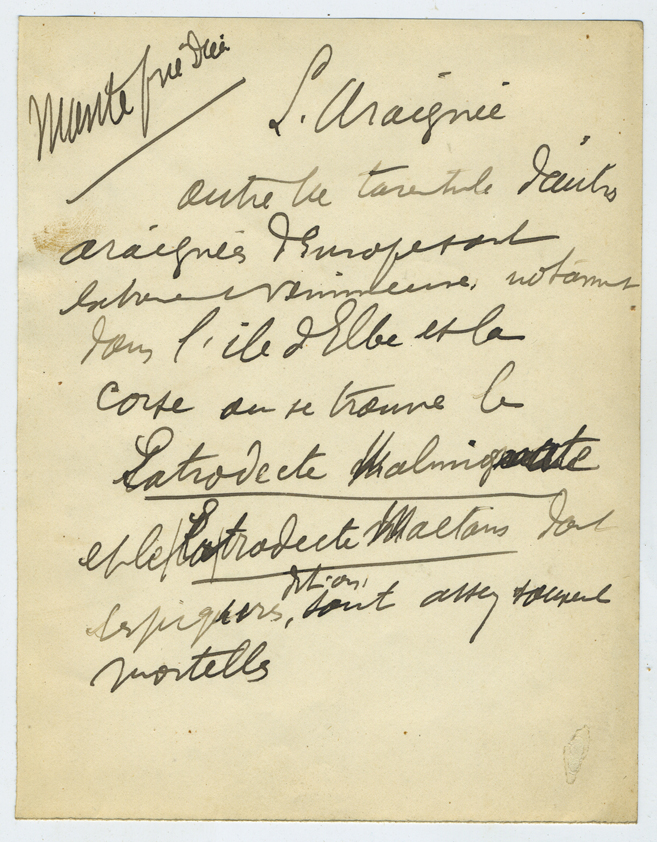 Mante
L'Araignée
outre la tarentule d'autres
araignées d'Europe sont
venimeuses, notamt
dans l'ile d'Elbe et la
Corse ou se trouve le
Latrodecte Malmignate
et le Latrodecte Mactans dont
les piqures, dit-on, sont assez souvent
mortelles